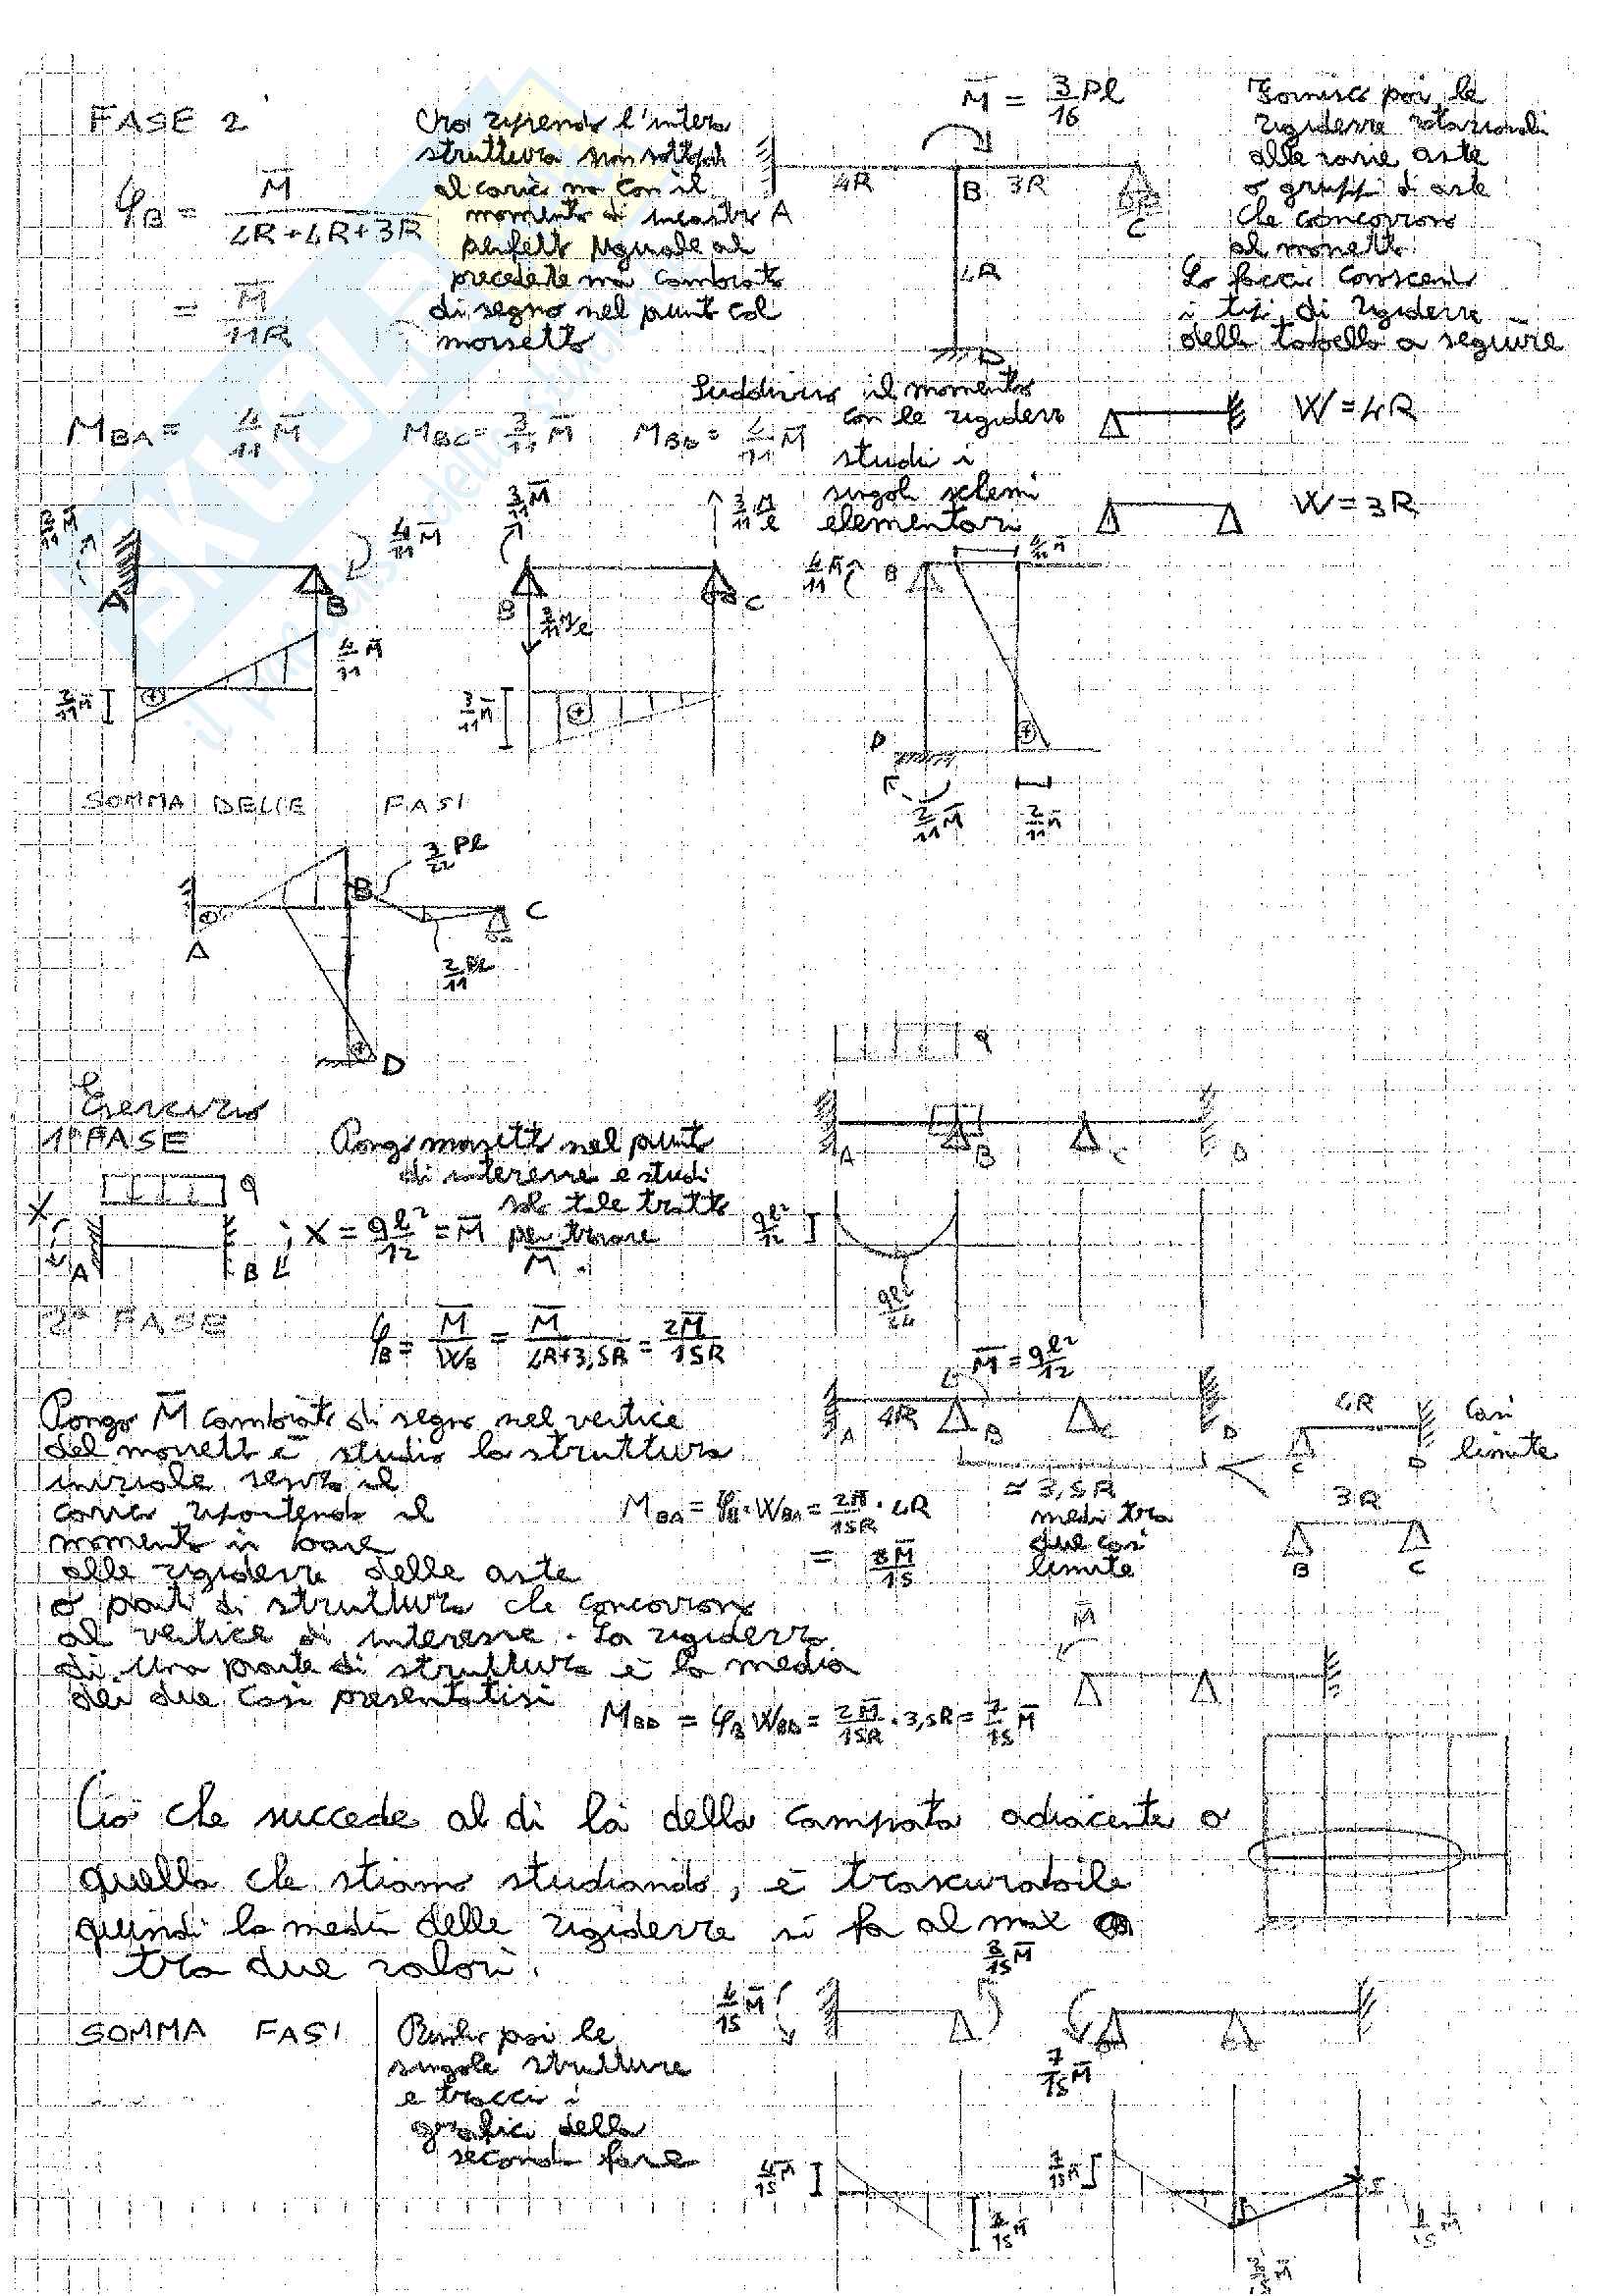 FASE 2
φB = M̄ / (4R+4R+3R)
= M̄ / 11R
Ora riprendo l'intera
struttura non sottop.
al carico ma con il
momento di incastro
perfetto uguale al
precedente ma cambiato
di segno nel punto col
morsetto
M̄ = 3/16 Pl
4R B 3R
A
C
4R
D
Fornisco poi le
rigidezze rotazionali
alle varie aste
o gruppi di aste
che concorrono
al morsetto
Lo faccio conoscendo
i tipi di rigidezze
della tabella a seguire
MBA = 4/11 M̄ MBC = 3/11 M̄ MBD = 4/11 M̄
Suddivido il momento
con le rigidezze
studio i
singoli schemi
elementari
W = 4R
W = 3R
2/11 M̄
4/11 M̄
A B
4/11 M̄
2/11 M̄
3/11 M̄
3/11 M̄/l
B C
3/11 M̄/l
3/11 M̄
4/11 M̄
B
4/11 M̄
D
2/11 M̄
2/11 M̄
SOMMA DELLE FASI
3/22 Pl
B
C
A
2/11 Pl
D
Esercizio
1ª FASE
q
X
A B
; X = ql²/12 = M̄
Pongo morsetto nel punto
di interesse e studio
solo tale tratto
per trovare
M̄.
q
A B C D
ql²/12
ql²/24
2ª FASE
φB = M̄/WB = M̄/(4R+3,5R) = 2M̄/15R
M̄ = ql²/12
A 4R B C D
≈ 3,5R
media tra
due casi
limite
4R
C D
casi
limite
3R
B C
Pongo M̄ cambiato di segno nel vertice
del morsetto e studio la struttura
iniziale senza il
carico ripartendo il
momento in base
alle rigidezze delle aste
o parti di struttura che concorrono
al vertice di interesse. La rigidezza
di una parte di struttura è la media
dei due casi presentatisi
MBA = φB·WBA = 2M̄/15R · 4R
= 8M̄/15
M̄
MBD = φB WBD = 2M̄/15R · 3,5R = 7/15 M̄
Ciò che succede al di là della campata adiacente a
quella che stiamo studiando, è trascurabile
quindi la media delle rigidezze si fa al max
tra due valori.
SOMMA FASI
Prendo poi le
singole strutture
e traccio i
grafici della
seconda fase
4/15 M̄
8/15 M̄
7/15 M̄
4/15 M̄
8/15 M̄
7/15 M̄